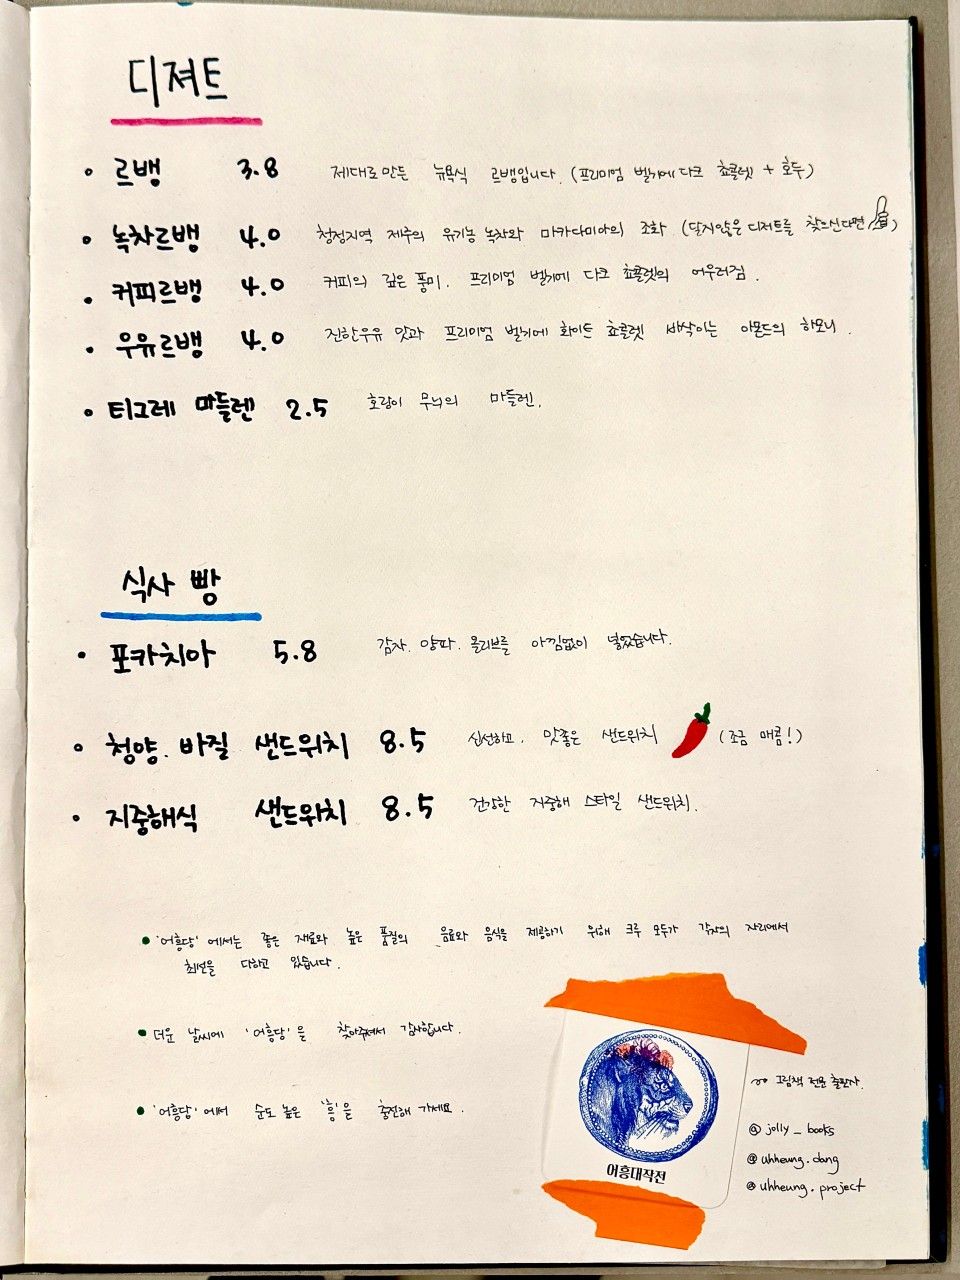 디져트
• 르뱅 3.8 제대로만든 뉴욕식 르뱅입니다. (프리미엄 벨기에 다크 쵸콜렛 + 호두)
• 녹차르뱅 4.0 청정지역 제주의 유기농 녹차와 마카다미아의 조화 (달지않은 디저트를 찾으신다면)
• 커피르뱅 4.0 커피의 깊은 풍미. 프리미엄 벨기에 다크 쵸콜렛의 어우러짐.
• 우유르뱅 4.0 진한우유 맛과 프리미엄 벨기에 화이트 쵸콜렛 바삭이는 아몬드의 하모니.
• 티그레 마들렌 2.5 호랑이 무늬의 마들렌.
식사 빵
• 포카치아 5.8 감자. 양파. 올리브를 아낌없이 넣었습니다.
• 청양.바질 샌드위치 8.5 신선하고. 맛좋은 샌드위치 (조금 매콤!)
• 지중해식 샌드위치 8.5 건강한 지중해 스타일 샌드위치.
• '어흥당'에서는 좋은 재료와 높은 품질의 음료와 음식을 제공하기 위해 크루 모두가 각자의 자리에서
최선을 다하고 있습니다.
• 더운 날씨에 '어흥당'을 찾아주셔서 감사합니다.
• '어흥당'에서 순도 높은 '흥'을 충전해 가세요.
어흥대작전
그림책 전문 출판사.
@ jolly_books
@ uhheung.dang
@ uhheung.project